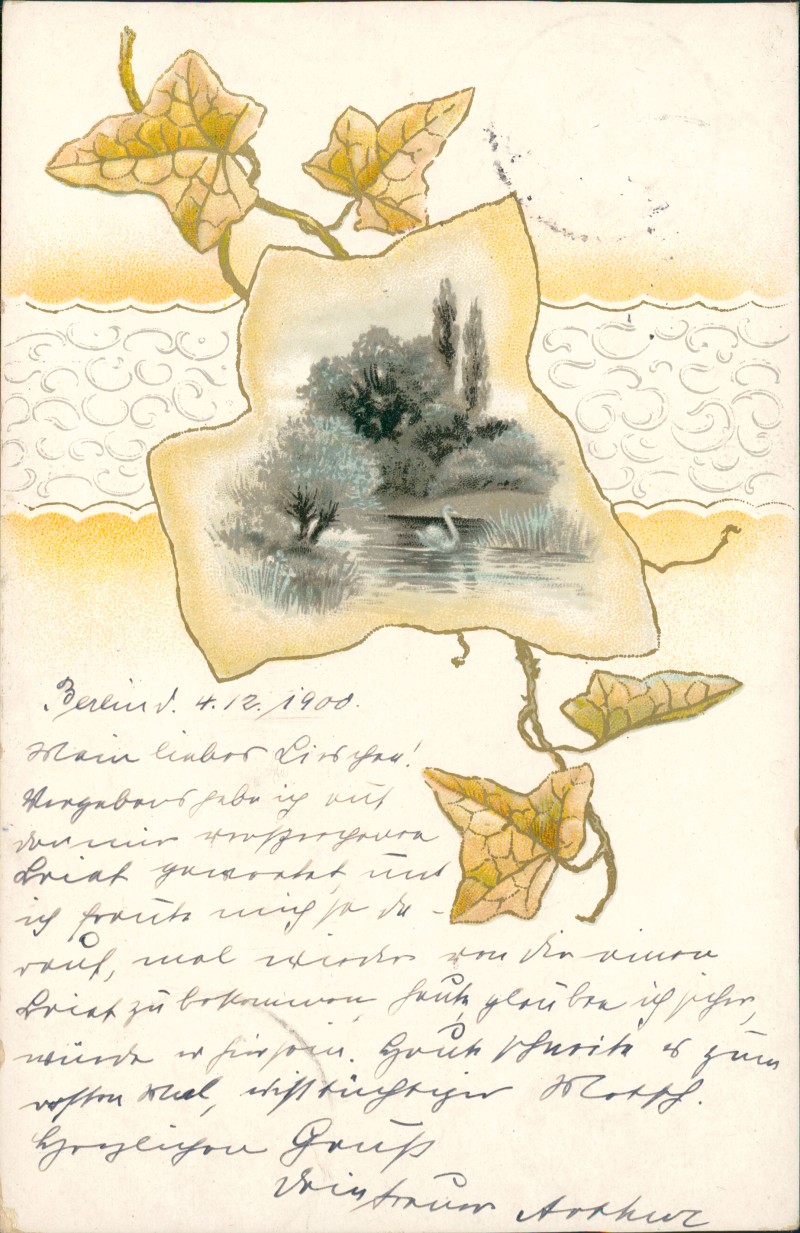 Berlin d. 4.12.1900.
Mein liebes Lieschen!
Vergebens habe ich auf
den mir versprochenen
Brief gewartet und
ich freute mich so da-
rauf, mal wieder von dir einen
Brief zu bekommen, heute, glaubte ich sicher,
würde er hier sein. Heute schneite es zum
ersten Mal, ist tüchtiger Matsch.
Herzlichen Gruß
Dein treuer Arthur